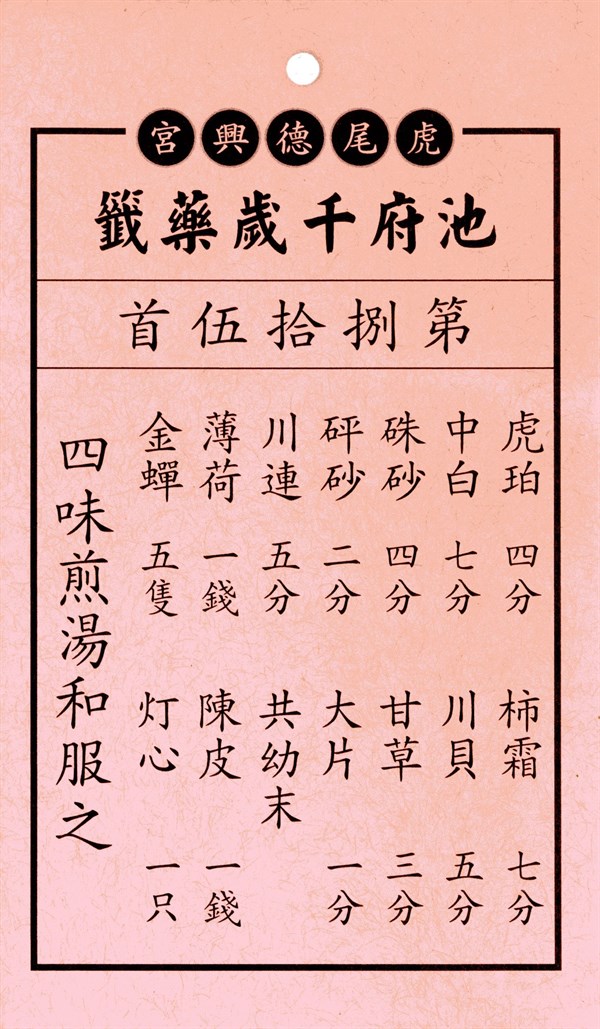 虎尾德興宮
池府千歲藥籤
第捌拾伍首
虎珀 四分 柿霜 七分
中白 七分 川貝 五分
硃砂 四分 甘草 三分
砰砂 二分 大片 一分
川連 五分 共幼末
薄荷 一錢 陳皮 一錢
金蟬 五隻 灯心 一只
四味煎湯和服之